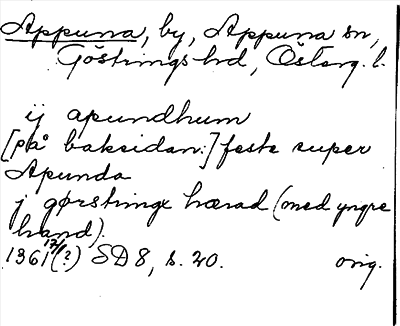 Appuna, by, Appuna sn,
Göstrings hd, Östarg. l.
ij apundhum
[på baksidan:] feste super
Apunda
j gørstringx hærad (med yngre
hand).
1361 17/1 (?) SD 8, s. 20. orig.